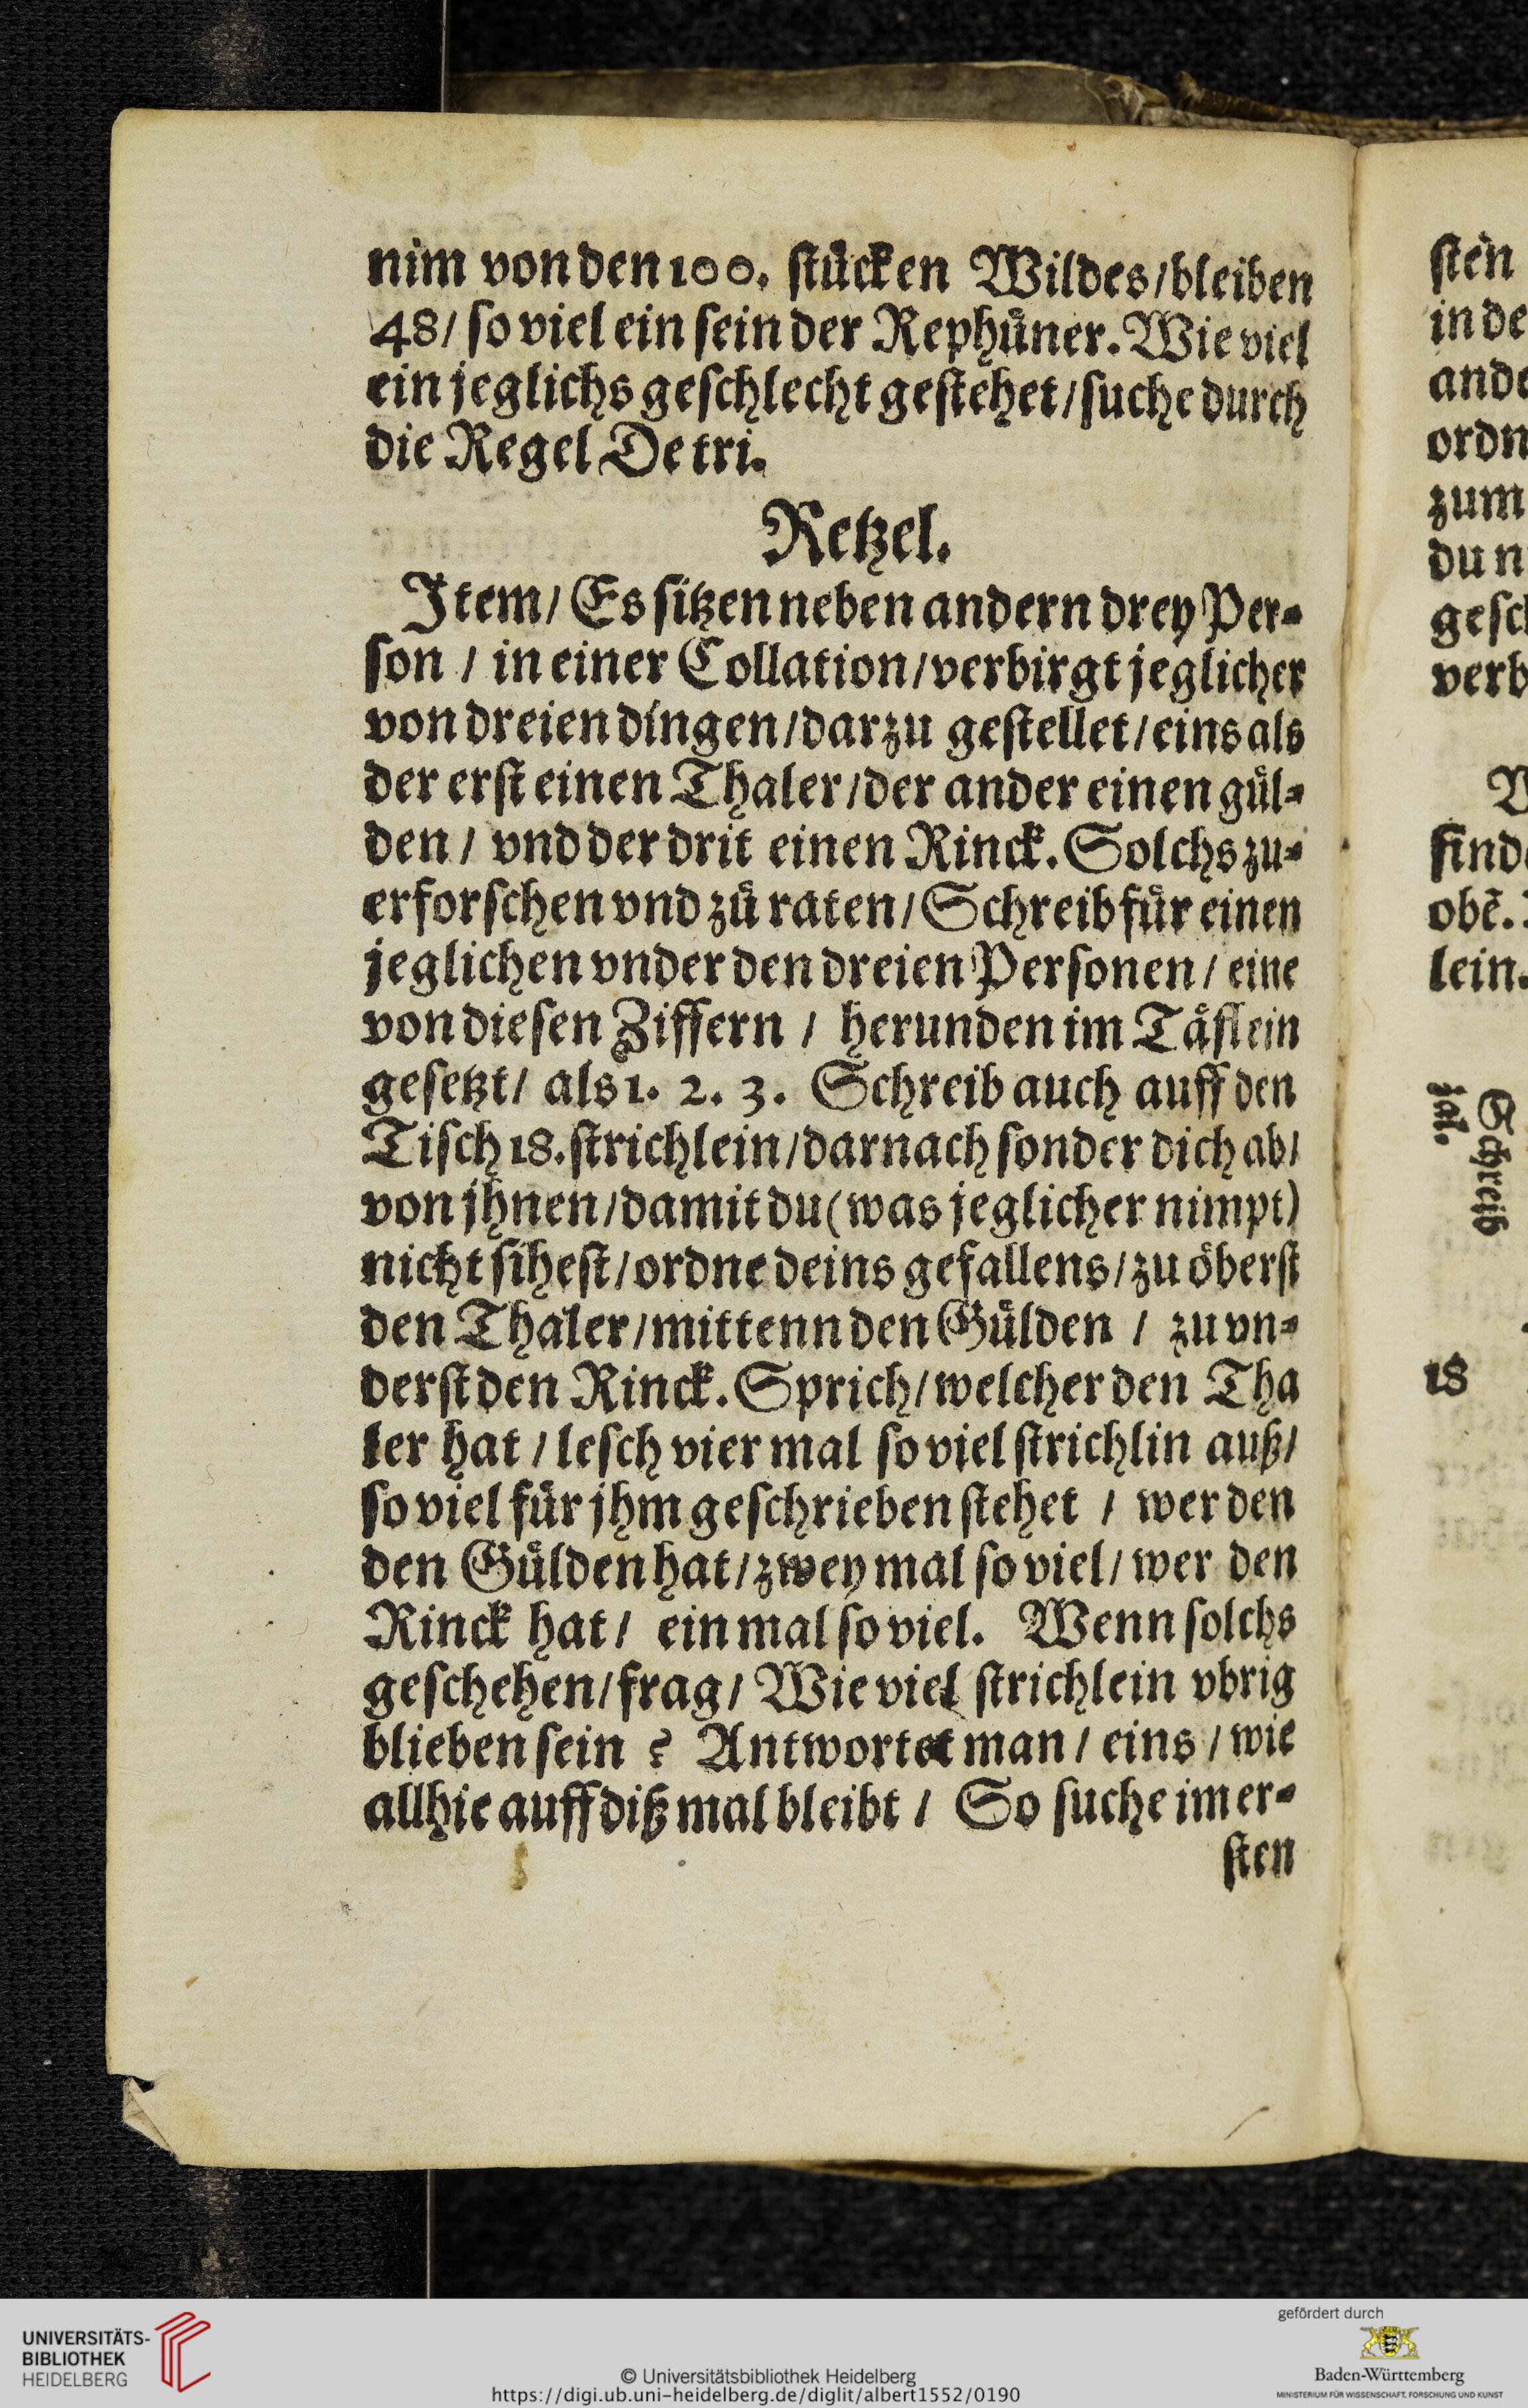 nim von den 100. ſtücken Wildes/bleiben
48/ ſo viel ein ſein der Rephüner. Wie viel
ein jeglichs geſchlecht geſtehet/ſuche durch
die Regel De tri.
Retzel.
Item/ Es ſitzen neben andern drey Per⸗
ſon / in einer Collation/verbirgt jeglicher
von dreien dingen/darzu geſtellet/eins als
der erſt einen Thaler/der ander einen gül⸗
den/ vnd der drit einen Rinck. Solchs zu⸗
erforſchen vnd zů raten/Schreib für einen
jeglichen vnder den dreien Perſonen/ eine
von dieſen Ziffern / herunden im Täflein
geſetzt/ als 1. 2. 3. Schreib auch auff den
Tiſch 18. ſtrichlein/darnach ſonder dich ab/
von jhnen/damit du (was jeglicher nimpt)
nicht ſiheſt/ordne deins gefallens/zu öberſt
den Thaler/mittenn den Gülden / zu vn⸗
derſt den Rinck. Sprich/welcher den Tha
ler hat / leſch vier mal ſo viel ſtrichlin auß/
ſo viel für jhm geſchrieben ſtehet / wer den
den Gülden hat/zwey mal ſo viel/ wer den
Rinck hat/ ein mal ſo viel. Wenn ſolchs
geſchehen/frag/ Wie viel ſtrichlein vbrig
blieben ſein ? Antwortet man/ eins/ wie
allhie auff diß mal bleibt / So ſuche im er⸗
ſten
ſten
in de
ande
ordn
zum
du n
geſch
verb
find
obē.
lein.
Schreib
zal.
18
UNIVERSITÄTS-
BIBLIOTHEK
HEIDELBERG
© Universitätsbibliothek Heidelberg
https://digi.ub.uni-heidelberg.de/diglit/albert1552/0190
gefördert durch
Baden-Württemberg
MINISTERIUM FÜR WISSENSCHAFT, FORSCHUNG UND KUNST